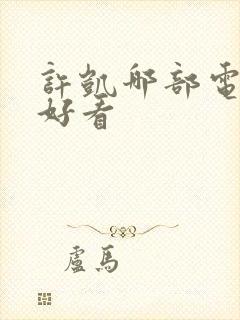 許凱那部電
好看
盧馬